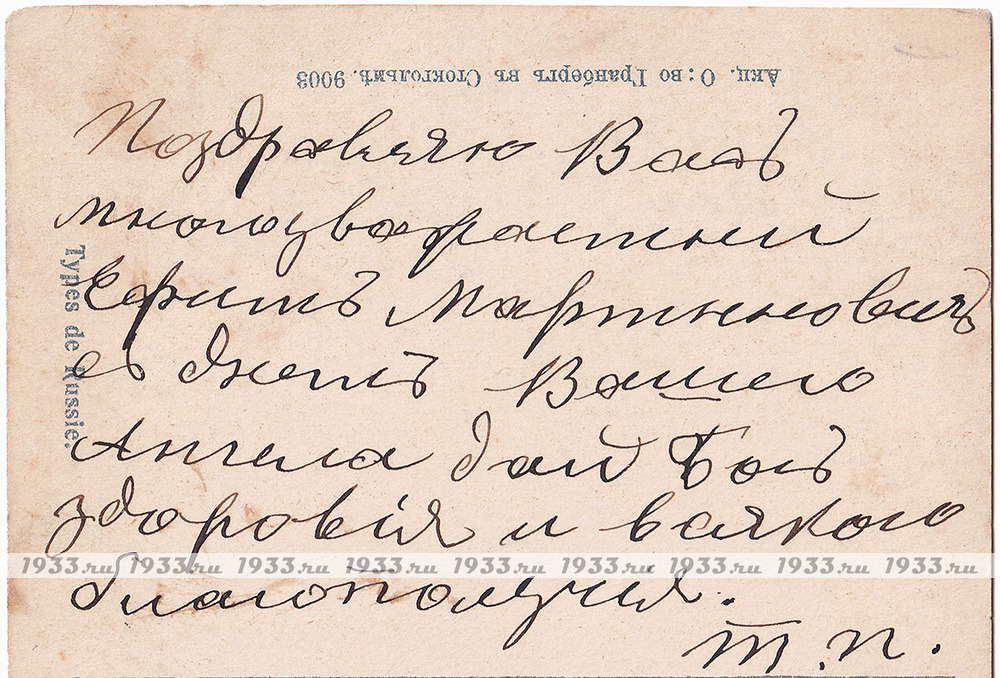 Акц. О:во Гранбергъ въ Стокгольмѣ. 9003
Поздравляю Васъ
многоуважаемый
Ефимъ Мартиновичъ
съ днемъ Вашего
Ангела дай Богъ
здоровія и всякого
благополучія.
Т. П.
Types de Russie.
1933.ru 1933.ru 1933.ru 1933.ru 1933.ru 1933.ru 1933.ru 1933.ru 1933.ru